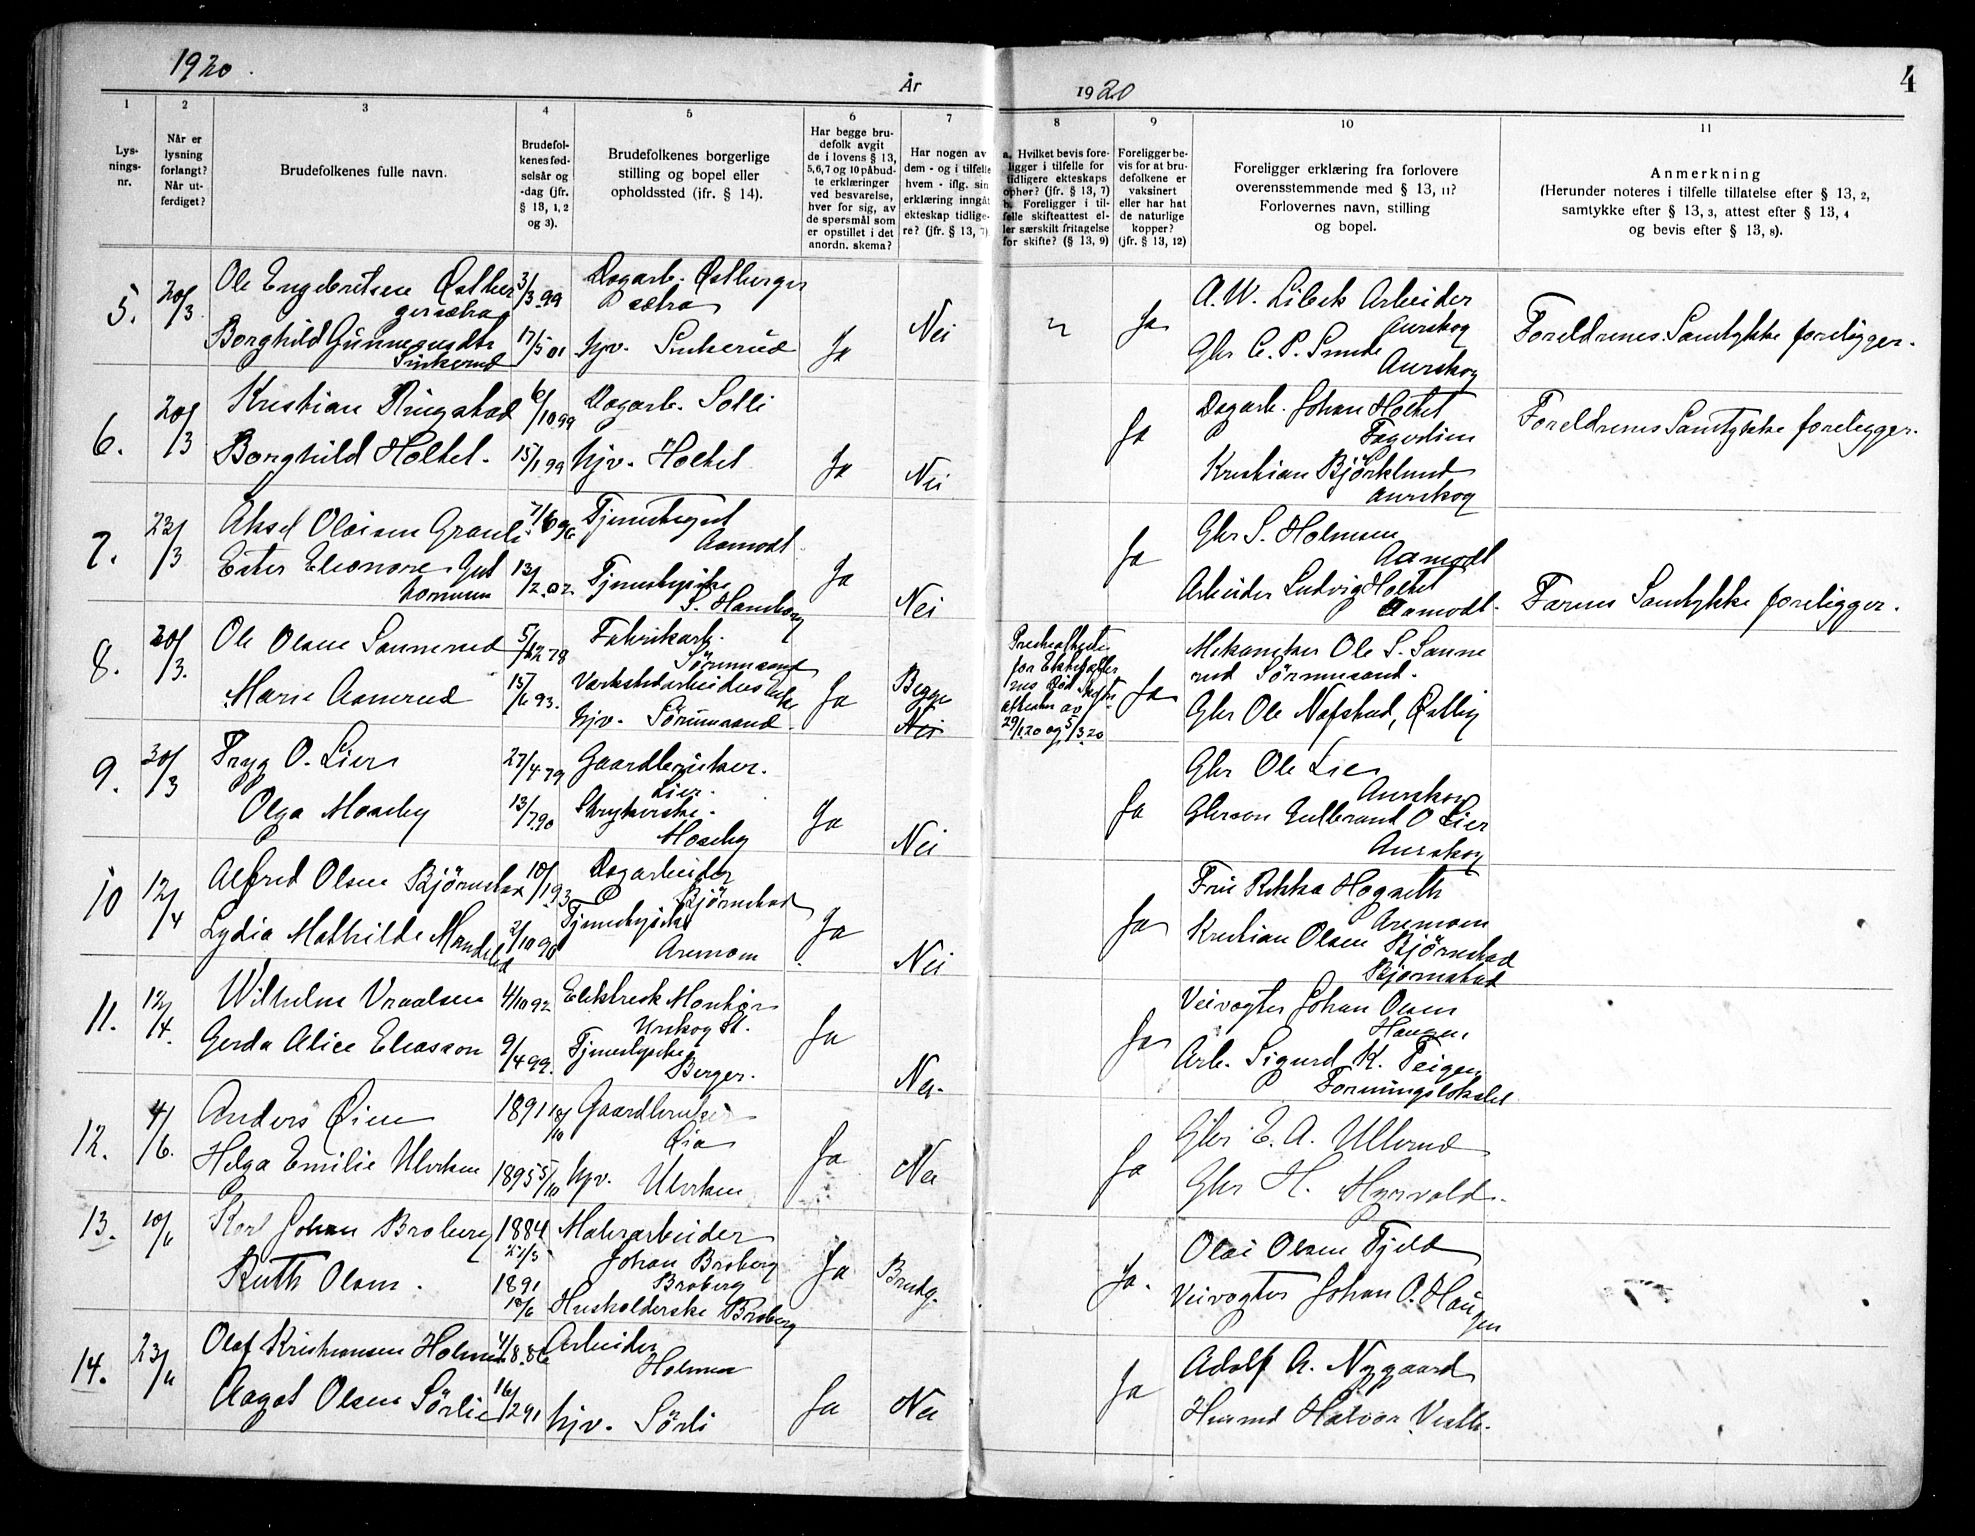 1920.
År
1920
4
1
2
3
4
5
6
7
8
9
10
11
Lys-
nings-
nr.
Når er
lysning
forlangt?
Når ut-
ferdiget?
Brudefolkenes fulle navn.
Brudefol-
kenes fød-
selsår og
-dag (jfr.
§ 13, 1, 2
og 3).
Brudefolkenes borgerlige
stilling og bopel eller
opholdssted (jfr. § 14).
Har begge bru-
defolk avgit
de i lovens § 13,
5, 6, 7 og 10 påbud-
te erklæringer
ved besvarelse,
hver for sig, av
de spørsmål som
er opstillet i det
anordn. skema?
Har nogen av
dem - og i tilfelle
hvem - iflg. sin
erklæring inngåt
ekteskap tidlige-
re? (jfr. § 13, 7)
a. Hvilket bevis fore-
ligger i tilfelle for
tidligere ekteskaps
ophør? (jfr. § 13, 7)
b. Foreligger i til-
felle skifteattest el-
ler særskilt fritagelse
for skifte? (§ 13, 9)
Foreligger be-
vis for at bru-
defolkene er
vaksinert
eller har hat
de naturlige
kopper?
(jfr. § 13, 12)
Foreligger erklæring fra forlovere
overensstemmende med § 13, 11?
Forlovernes navn, stilling
og bopel.
Anmerkning
(Herunder noteres i tilfelle tillatelse efter § 13, 2,
samtykke efter § 13, 3, attest efter § 13, 4
og bevis efter § 13, 8).
5. 20/3 Ole Engebretsen Østber
gersætra 3/3 99 Dagarb. Østberger
sætra
Borghild Gunnerusdtr
Sinkerud 17/5 01 hjv. Sinkerud Ja Nei Ja
A. W. Libek Arbeider
Aurskog
Gbr C. P. Sunde
Aurskog
Foreldrenes Samtykke foreligger.
6. 20/3 Kristian Ringstad 6/10 99 Dagarb. Solli
Borghild Holtet. 15/1 99 hjv. Holtet Ja Nei Ja
Dagarb. Johan Holtet
Fagerlien
Kristian Bjørklund
Aurskog
Foreldrenes Samtykke foreligger.
7. 23/3 Aksel Olaisen Granli 7/6 96 Tjenestegut
Aamodt.
Ester Eleonore Gut
tormsen 13/2 02. Tjenestepike
S. Hamborg Ja Nei Ja
Gbr S. Holmsen
Aamodt
Arbeider Ludvig Holtet
Aamodt.
Farens Samtykke foreligger.
8. 20/3. Ole Olsen Sannerud 5/12 78 Fabrikarb.
Sørumsand
Marie Aamerud 15/6 93. Verkstedarbeiders enke
hjv. Sørumsand. Ja Begge
Nei
29/1 20 og 5/3 20 Ja
Mekaniker Ole S. Sanne
rud Sørumsand.
Gbr Ole Nafstad, Østby
9. 30/3 Tryg O. Lier 27/4 79 Gaardbruker.
Lier.
Olga Moseby 13/7 90 Strykerske.
Moseby Ja Nei Ja
Gbr Ole Lier
Aurskog
Gbrsøn Gulbrand O Lier
Aurskog
10 12/4 Alfred Olsen Bjørnstad 10/1 93 Dagarbeider
Bjørnstad
Lydia Mathilde Mandelid 2/10 90 Tjenestepike
Aremom Ja Nei Ja
Fru Rikka Hogseth
Aremom
Kristian Olsen Bjørnstad
Bjørnstad
11. 12/4. Wilhelm Vraalsen 4/10 92 Elektrisk Montør
Urskog St.
Gerda Alice Eleasson 9/4 99. Tjenestepike
Berger. Ja Nei. Ja
Veivogter Johan Olsen
Haugen,
Arb. Sigurd K. Teigen,
Foreningslokalet
12. 4/6. Anders Øien 1891 18/10 Gaardbruker
Øia
Helga Emilie Ulviken 1895 5/10 hjv. Ulviken Ja Nei Ja
Gbr E. A. Ullerud
Gbr H. Hyrvold.
13. 10/6 Karl Johan Broberg 1884
27/5 Malerarbeider
Johan Broberg
Broberg
Ruth Olsen. 1891
18/6 Husholderske Broberg Ja Brudg. Ja.
Olai Olsen Fjeld
Veivogter Johan O. Haugen
14. 23/6 Olaf Kristiansen Holmen 4/8 86 Arbeider
Holmen
Aagot Olsen Sørlie 16/2 91 hjv. Sørli Ja Nei Ja
Adolf A. Nygaard
Husmd Halvor Vestli.